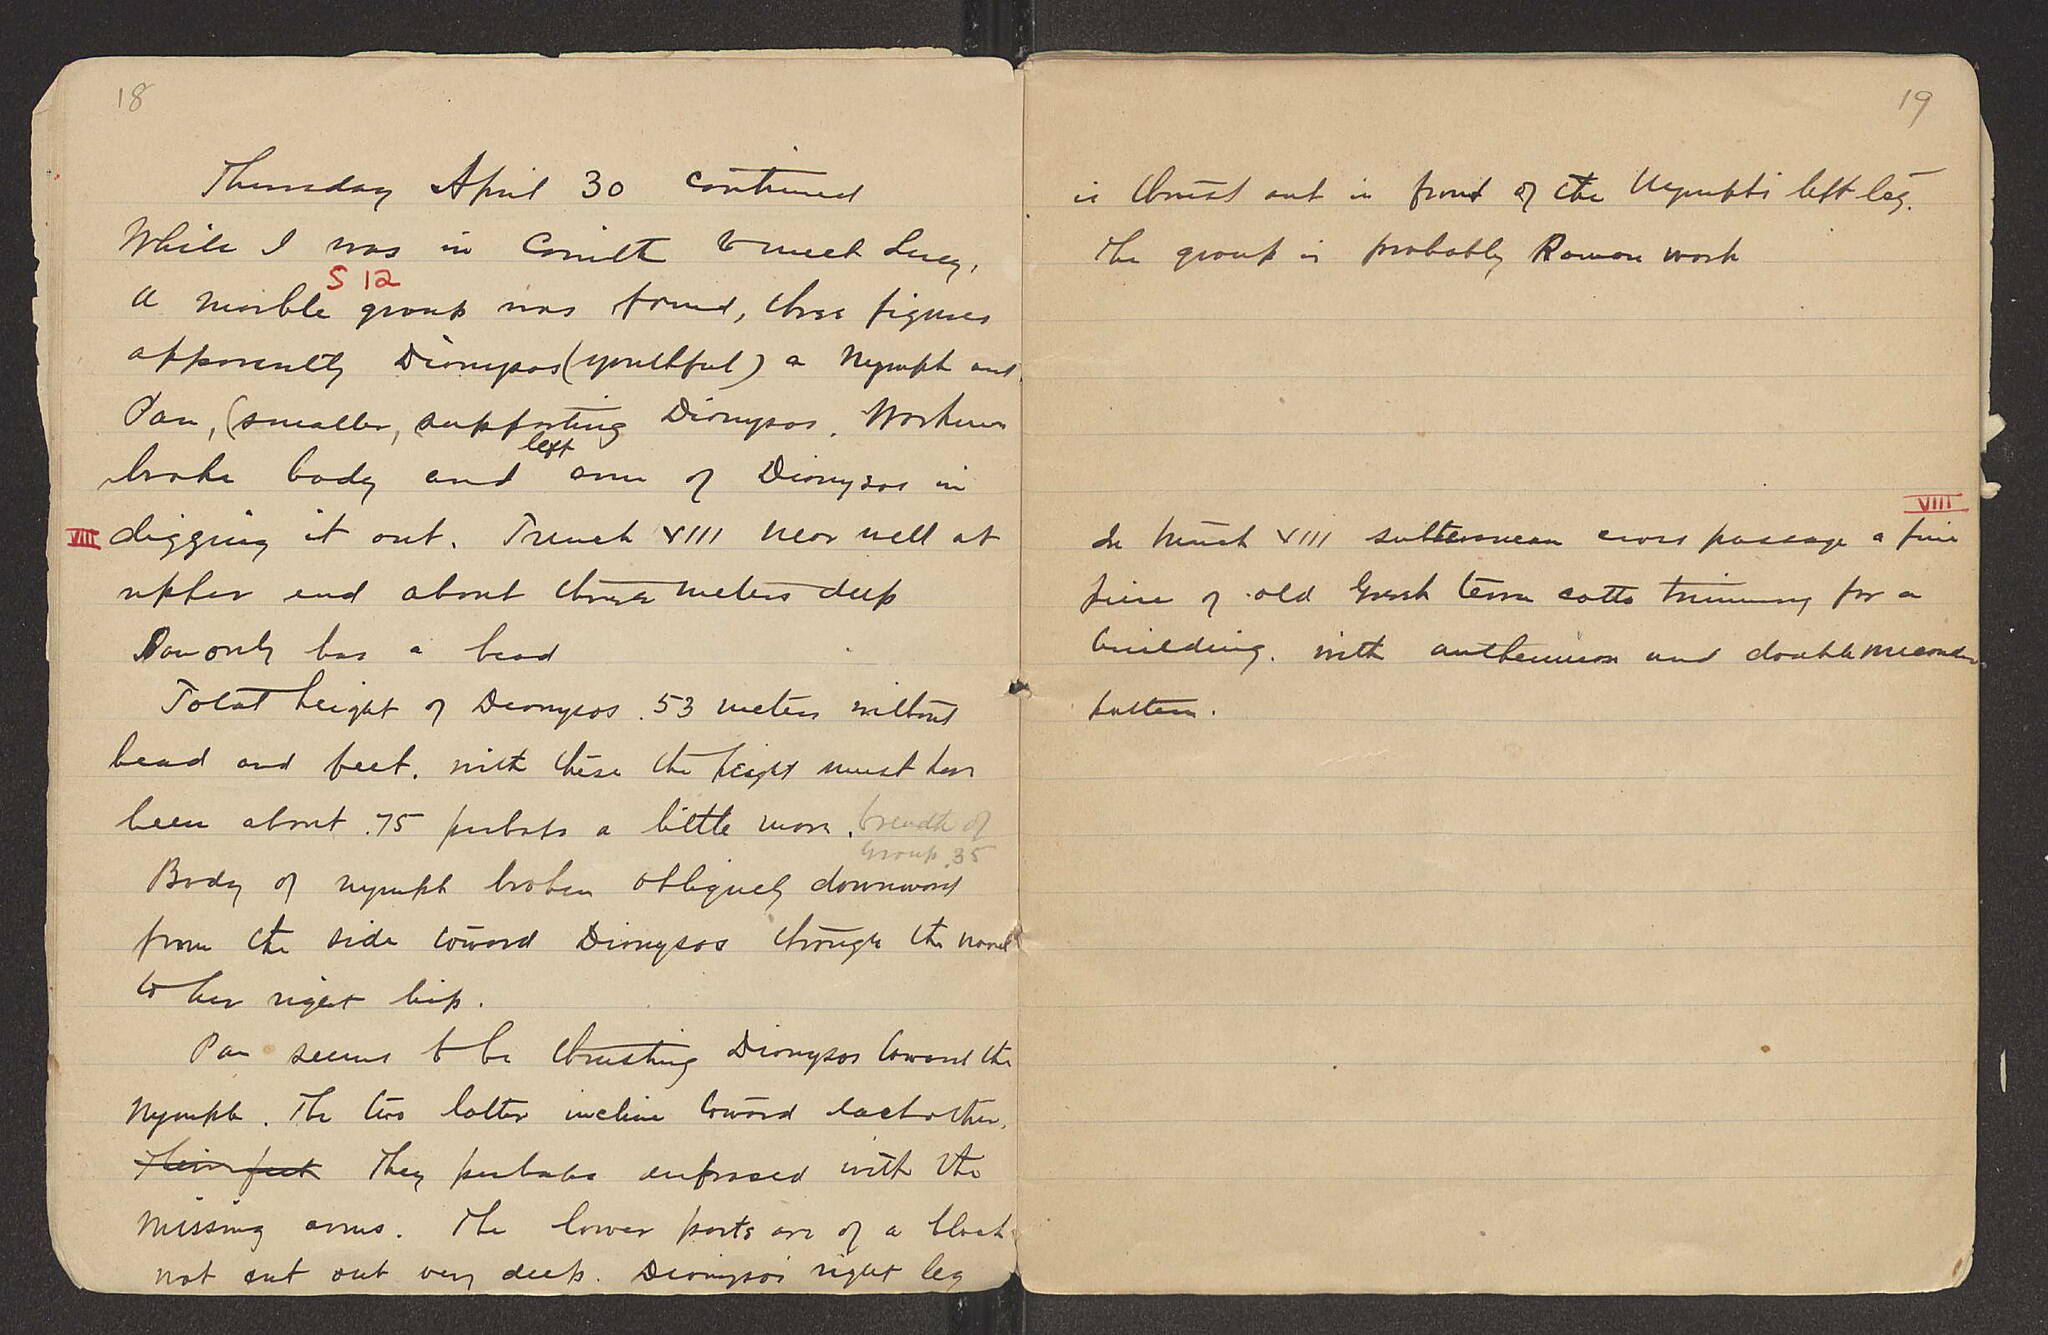 18
Thursday April 30 continued
While I was in Corinth to meet Lucy,
S 12
a marble group was found, three figures
apparently Dionysos (youthful) a Nymph and
Pan, (smaller, supporting Dionysos. Workmen
broke body and left arm of Dionysos in
VIII digging it out. Trench VIII near well at
upper end about three meters deep
Pan only has a head
Total height of Dionysos .53 meters without
head and feet. with these the height must have
been about .75 perhaps a little more. breadth of
group .35
Body of nymph broken obliquely downward
from the side toward Dionysos through the navel
to her right hip.
Pan seems to be thrusting Dionysos toward the
Nymph. The two latter incline toward each other.
Their feet They perhaps embraced with the
missing arms. The lower parts are of a block
not cut out very deep. Dionysos' right leg
19
is thrust out in front of the Nymph's left leg.
The group is probably Roman work
VIII
In trench VIII subterranean cross passage a fine
piece of old Greek terra cotta trimming for a
building. with anthemion and double meander
pattern.